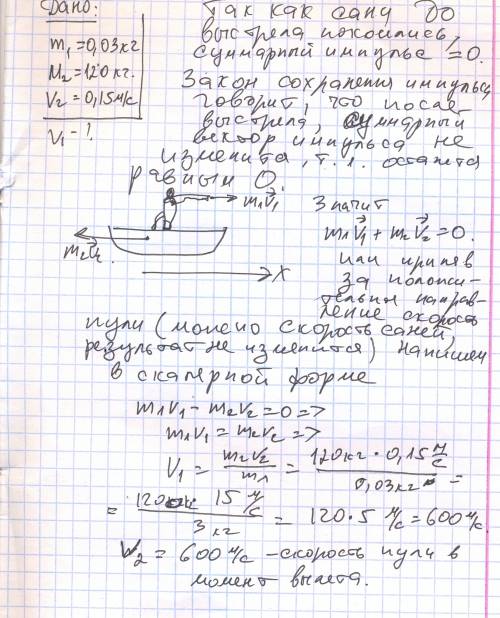 Дано:
m₁=0,03кг
M₂=120 кг.
V₂=0,15м/с
V₁-?
Так как сани до
выстрела покоились,
суммарный импульс =0.
Закон сохранения импульса
говорит, что после
выстрела, суммарный
вектор импульса не
изменита, т.е. остается
равным 0.
m₁V⃗₁
m₂V⃗₂
X
Значит
m₁V⃗₁+m₂V⃗₂=0.
или приняв
за положи-
тельны направ-
ление скорость
пули (можно скорость саней,
результат не изменится) напишем
в скалярной форме
m₁V₁-m₂V₂=0 =>
m₁V₁=m₂V₂ =>
V₁ = m₂V₂/m₁ = 120кг·0,15 м/с / 0,03кг =
= 120 15 м/с / 3 кг = 120·5 м/с = 600 м/с
V₂ = 600 м/с -скорость пули в
момент вылета.